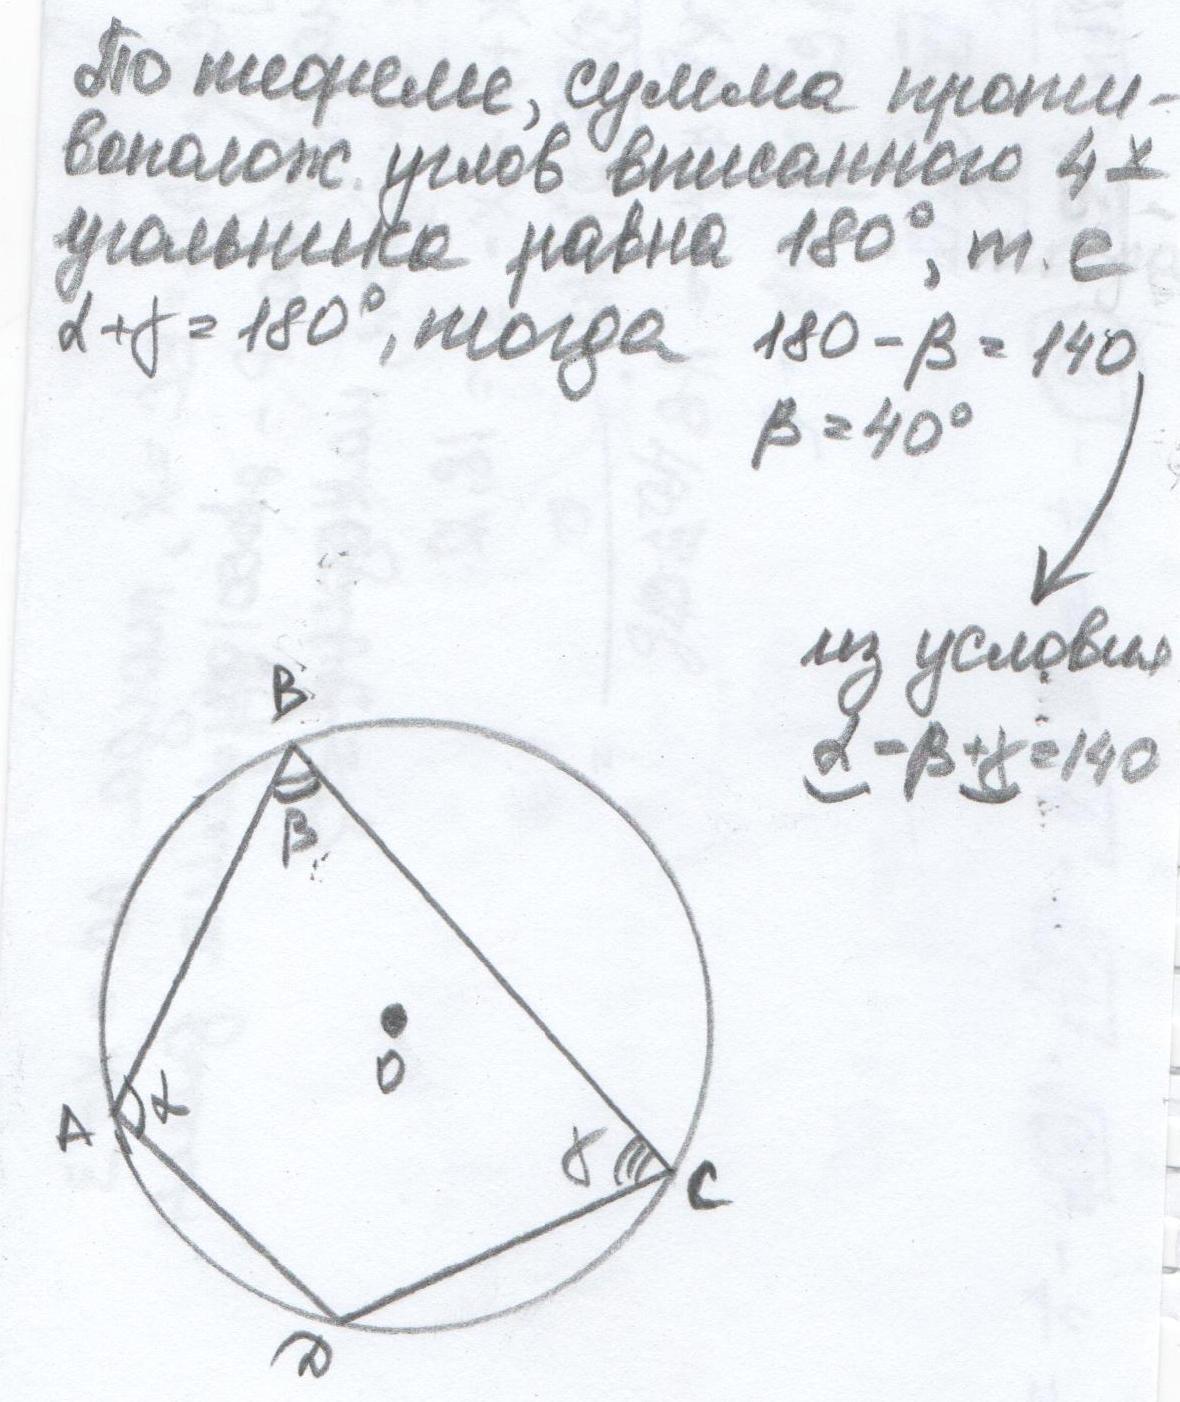 По теореме, сумма проти-
вополож. углов вписанного 4х
угольника равна 180°, т. е
α+γ=180°, тогда 180-β=140
β=40°
из условия
α-β+γ=140
B
β
O
A α
γ C
D